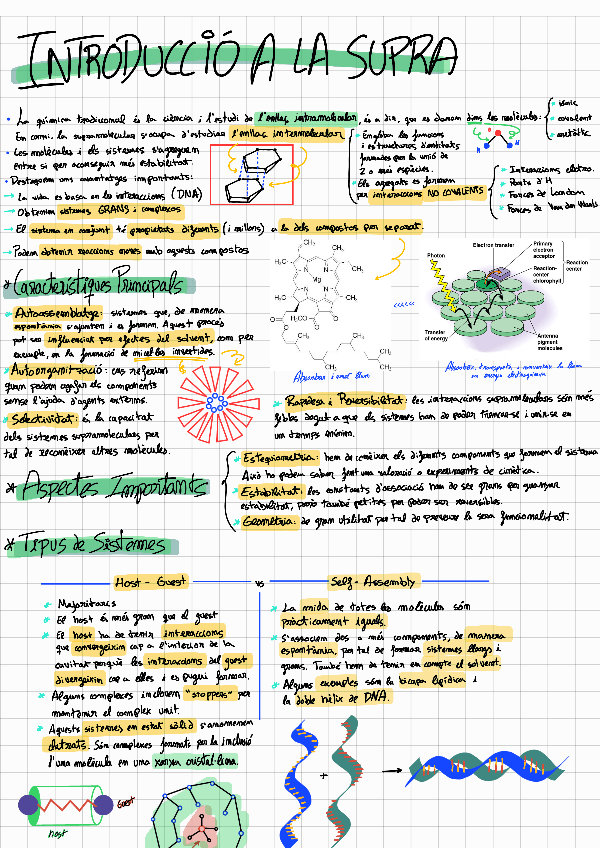 INTRODUCCIÓ A LA SUPRA
• La química tradicional és la ciència i l'estudi de l'enllaç intramolecular, és a dir, que es donen dins les molècules:
• iònic
• covalent
• metàl·lic
En canvi, la supramolecular s'ocupa d'estudiar l'enllaç intermolecular
Engloba les funcions
i estructures d'entitats
formades per la unió de
2 o més espècies.
Els agregats es formen
per interaccions NO COVALENTS
• Interaccions electro.
• Ponts d'H
• Forces de London
• Forces de Van der Waals
• Les molècules i els sistemes s'agreguen
entre si per aconseguir més estabilitat.
• Destaquem uns avantatges importants:
→ La vida es basa en les interaccions (DNA)
→ Obtenim sistemes GRANS i complexos
→ El sistema en conjunt té propietats diferents (i millors) a la dels compostos per separat.
→ Podem obtenir reaccions noves amb aquests compostos
* Característiques Principals
* Autoassemblatge: sistemes que, de manera
espontània s'ajunten i es formen. Aquest procés
pot ser influenciat per efectes del solvent, com per
exemple, en la formació de micel·les invertides.
* Autoorganització: ens refereix
quan podem agafar els components
sense l'ajuda d'agents externs.
* Selectivitat: és la capacitat
dels sistemes supramoleculars per
tal de reconèixer altres molècules.
CH₂
CH₃
CH₃
CH₃
N
N
Mg
N
N
CH₃
CH₃
CH₃
CH₃
CH₃
Absorbeix i emet llum
Electron transfer
Primary
electron
acceptor
Photon
Reaction-
center
chlorophyll
Reaction
center
Transfer
of energy
Antenna
pigment
molecules
Absorbeix, transporta, i converteix la llum
en energia electroquímica
* Rapidesa i Reversibilitat: les interaccions supramoleculars són més
febles degut a que els sistemes han de poder trencar-se i unir-se en
un temps mínim.
* Aspectes Importants
* Estequiometria: hem de conèixer els diferents components que formen el sistema
Això ho podem saber fent una valoració o experiments de cinètica.
* Estabilitat: les constants d'associació han de ser grans per guanyar
estabilitat, però també petites per poder ser reversibles.
* Geometria: de gran utilitat per tal de preveure la seva funcionalitat.
* Tipus de Sistemes
Host - Guest
vs
Self - Assembly
* Majoritaris
* El host és més gran que el guest
* El host ha de tenir interaccions
que convergeixin cap a l'interior de la
cavitat perquè les interaccions del guest
divergeixin cap a elles i es pugui formar.
* Alguns complexes inclouen "stoppers" per
mantenir el complex unit.
* Aquests sistemes en estat sòlid s'anomenen
clatrats. Són complexes formats per la inclusió
d'una molècula en una xarxa cristal·lina.
* La mida de totes les molècules són
pràcticament iguals.
* S'associen dos o més components, de manera
espontània, per tal de formar sistemes llargs i
grans. També hem de tenir en compte el solvent.
* Alguns exemples són la bicapa lipídica i
la doble hèlix de DNA.
Guest
Host
+